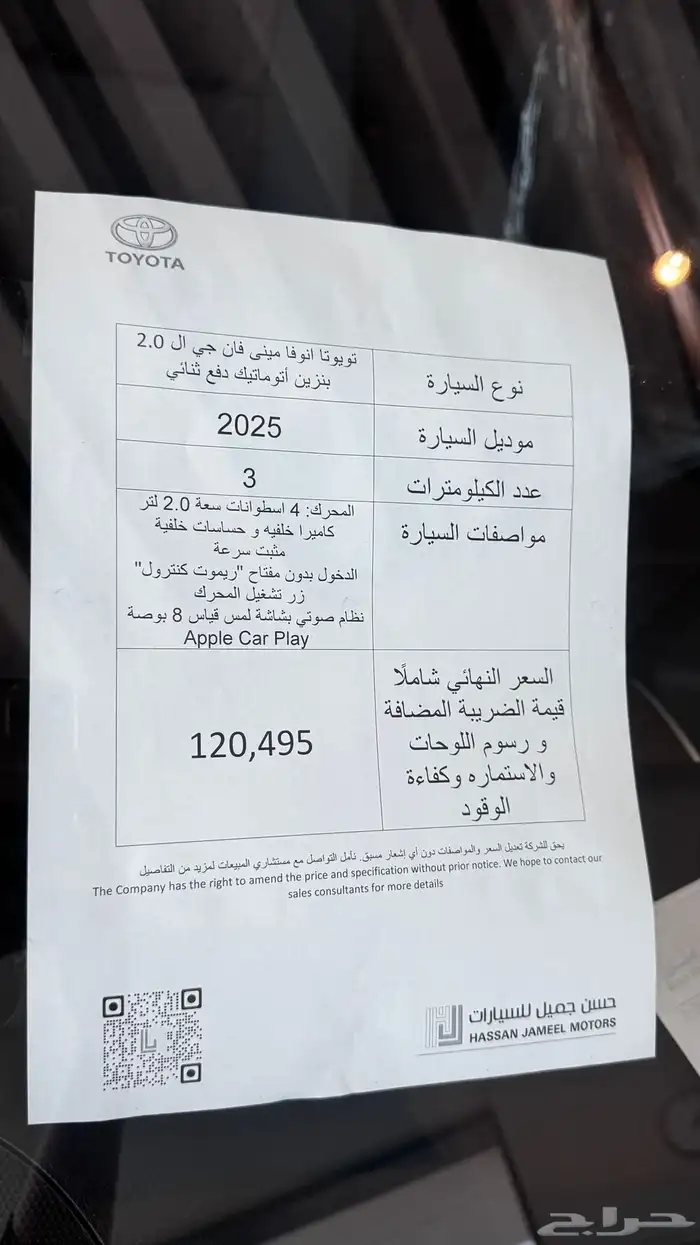 TOYOTA
نوع السيارة
تويوتا انوفا ميني فان جي ال 2.0
بنزين أتوماتيك دفع ثنائي
موديل السيارة
2025
عدد الكيلومترات
3
مواصفات السيارة
المحرك: 4 اسطوانات سعة 2.0 لتر
كاميرا خلفيه و حساسات خلفية
مثبت سرعة
الدخول بدون مفتاح "ريموت كنترول"
زر تشغيل المحرك
نظام صوتي بشاشة لمس قياس 8 بوصة
Apple Car Play
السعر النهائي شاملًا
قيمة الضريبة المضافة
و رسوم اللوحات
والاستماره وكفاءة
الوقود
120,495
يحق للشركة تعديل السعر والمواصفات دون أي إشعار مسبق. نأمل التواصل مع مستشاري المبيعات لمزيد من التفاصيل
The Company has the right to amend the price and specification without prior notice. We hope to contact our
sales consultants for more details
حسن جميل للسيارات
HASSAN JAMEEL MOTORS
حراج